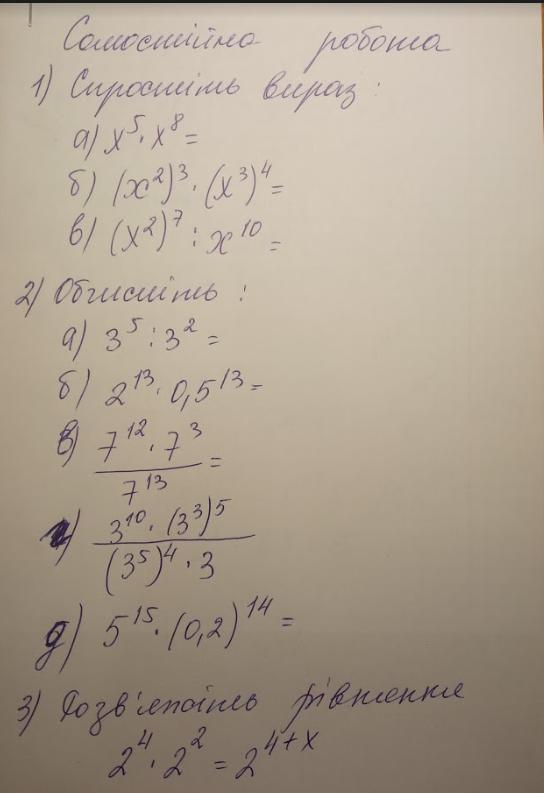 Самостійна робота
1) Спростіть вираз:
а) x⁵·x⁸=
б) (x²)³·(x³)⁴=
в) (x²)⁷:x¹⁰=
2) Обчисліть:
а) 3⁵:3²=
б) 2¹³·0,5¹³=
в) 7¹²·7³ / 7¹³ =
г) 3¹⁰·(3³)⁵ / (3⁵)⁴·3
д) 5¹⁵·(0,2)¹⁴=
3) Розв'яжіть рівняння
2⁴·2²=2⁴⁺ˣ